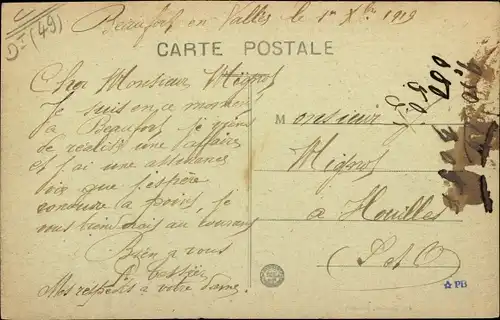 Dt (49)
Beaufort en Vallée le 1er Xbre 1919
CARTE POSTALE
Cher Monsieur Mignot
Je suis en ce moment
à Beaufort je viens
de réaliser une affaire
et j'ai une assurance
vie que j'espère
conclure à Paris, je
vous tiendrais au courant
Bien à vous
Tessier
Mes respects à votre dame.
Monsieur
Mignot
à Houilles
S et O
PB